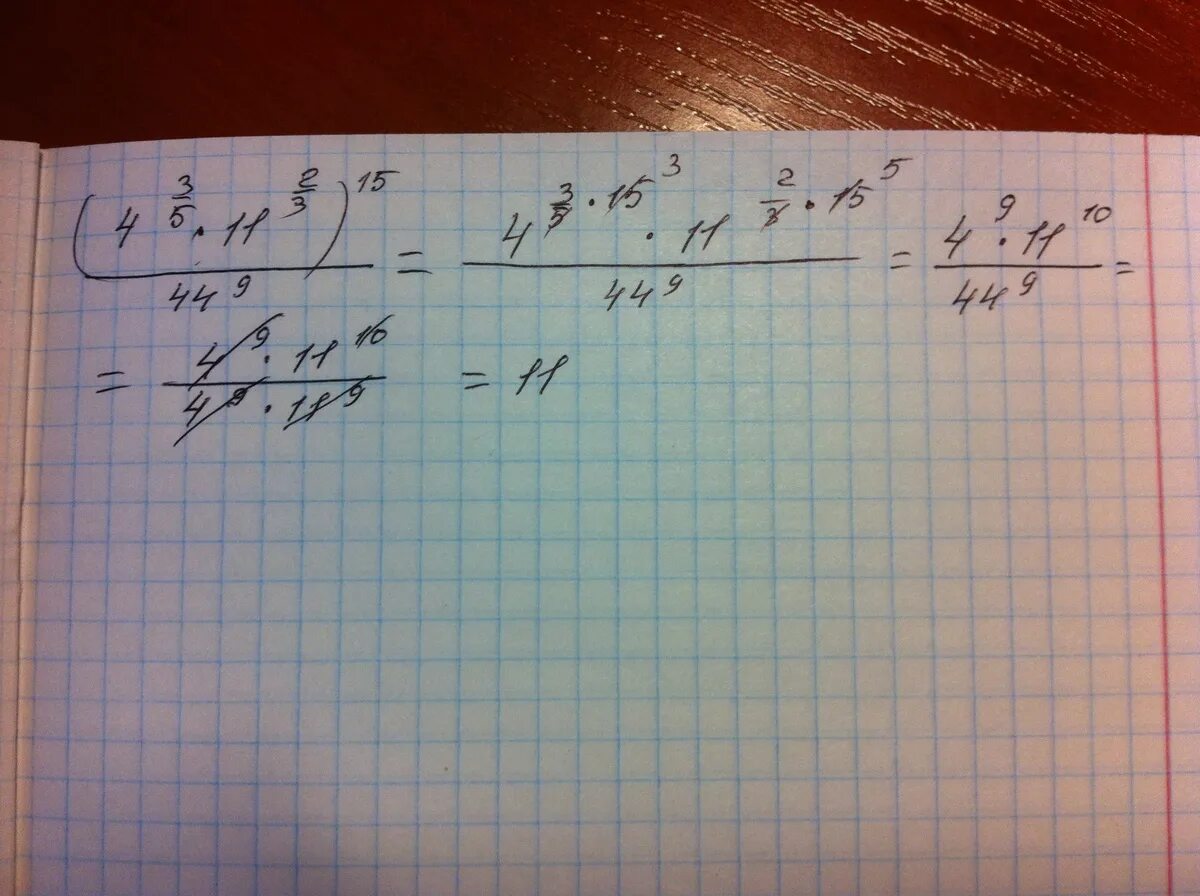 (4^(3/5) · 11^(2/3))^15 / 44^9 = 4^(3/5 · 15 3) · 11^(2/3 · 15 5) / 44^9 = 4^9 · 11^10 / 44^9 =
= 4^9 · 11^10 / 4^9 · 11^9 = 11